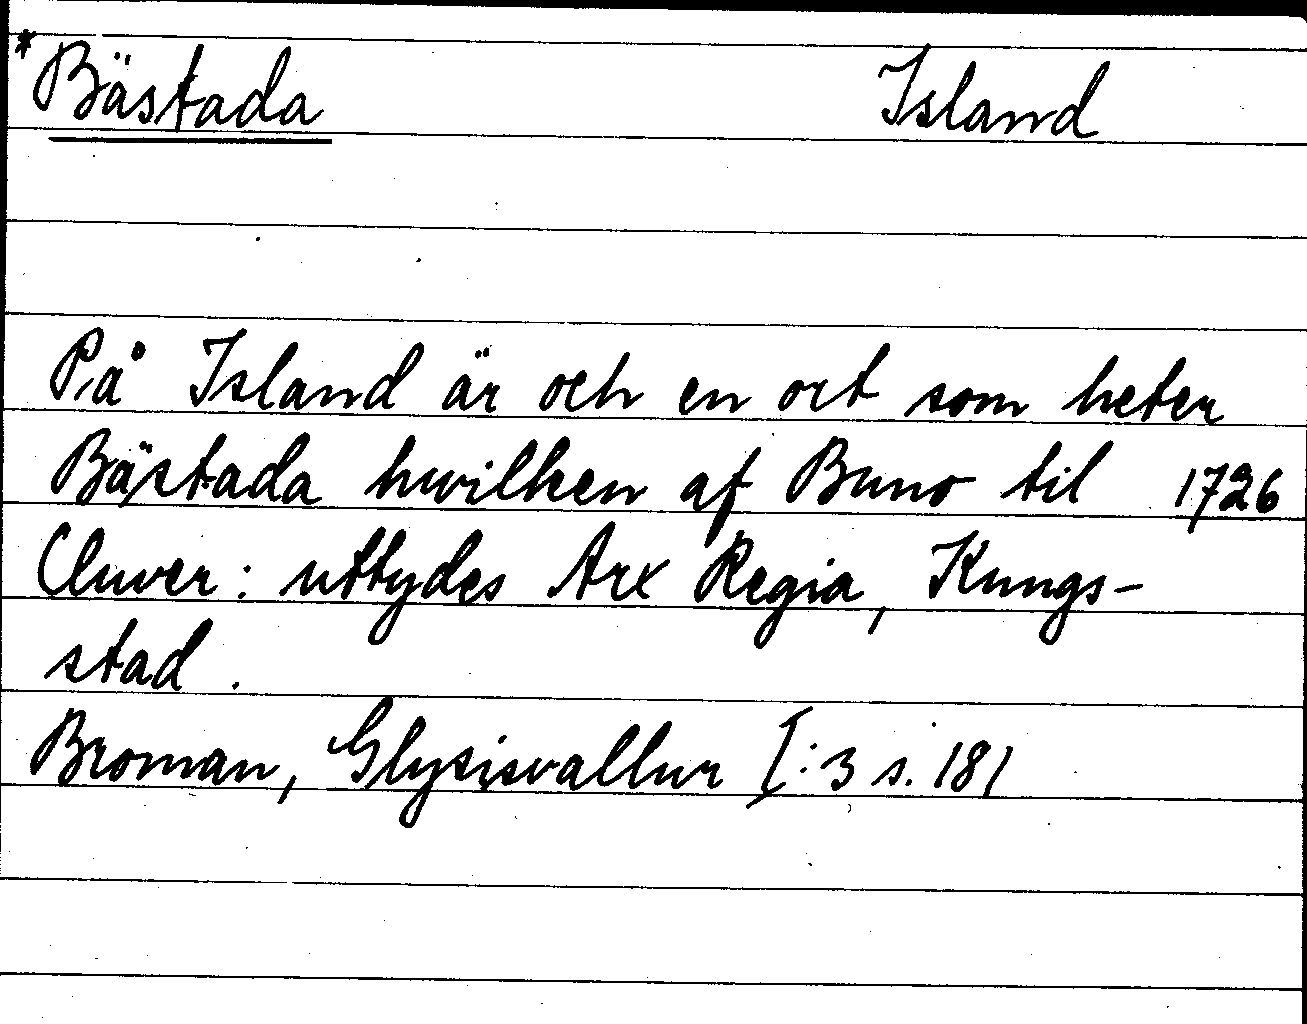 *Bästada Island
På Island är och en ort som heter
Bästada hwilken af Buno til 1726
Cluver: uttydes Arx Regia, Kungs-
stad.
Broman, Glysisvallur I:3 s. 181